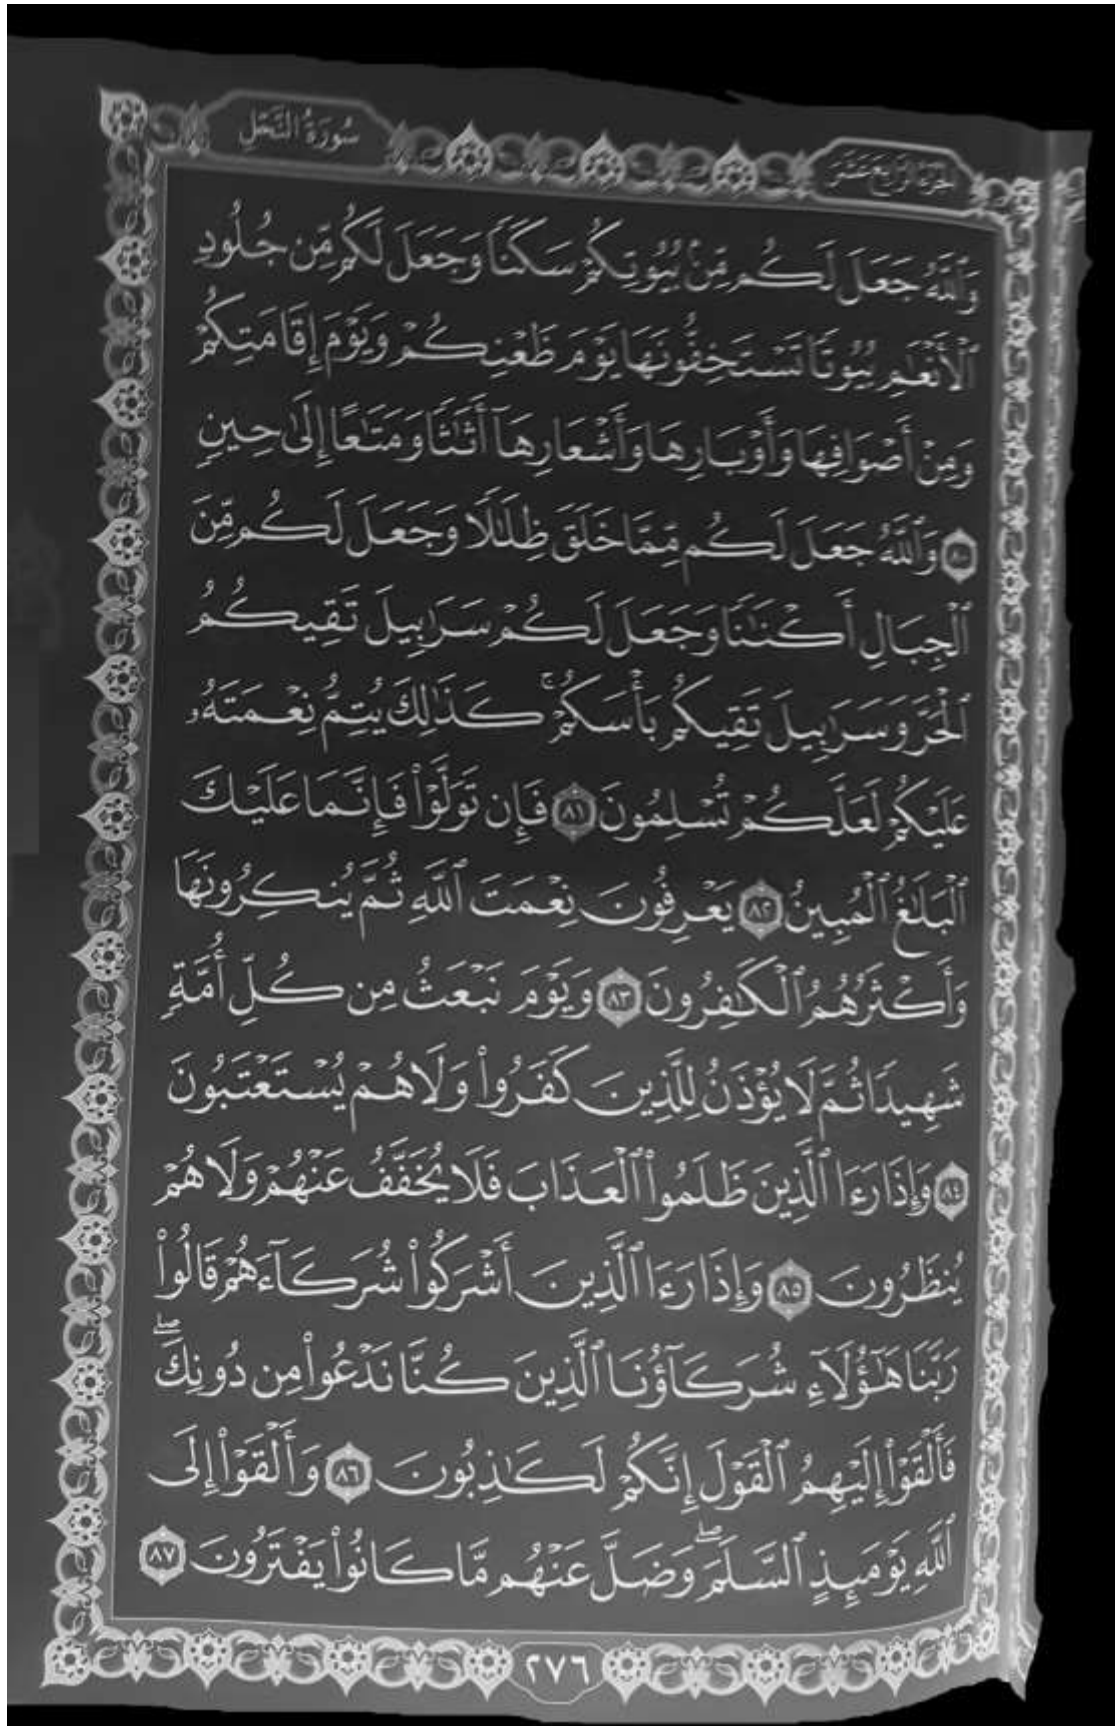 الجزء الرابع عشر
سورة النحل
وَٱللَّهُ جَعَلَ لَكُم مِّنۢ بُيُوتِكُمْ سَكَنًا وَجَعَلَ لَكُم مِّن جُلُودِ
ٱلْأَنْعَٰمِ بُيُوتًا تَسْتَخِفُّونَهَا يَوْمَ ظَعْنِكُمْ وَيَوْمَ إِقَامَتِكُمْ
وَمِنْ أَصْوَافِهَا وَأَوْبَارِهَا وَأَشْعَارِهَآ أَثَٰثًا وَمَتَٰعًا إِلَىٰ حِينٍ
٨٠ وَٱللَّهُ جَعَلَ لَكُم مِّمَّا خَلَقَ ظِلَٰلًا وَجَعَلَ لَكُم مِّنَ
ٱلْجِبَالِ أَكْنَٰنًا وَجَعَلَ لَكُمْ سَرَٰبِيلَ تَقِيكُمُ
ٱلْحَرَّ وَسَرَٰبِيلَ تَقِيكُم بَأْسَكُمْ ۚ كَذَٰلِكَ يُتِمُّ نِعْمَتَهُۥ
عَلَيْكُمْ لَعَلَّكُمْ تُسْلِمُونَ ٨١ فَإِن تَوَلَّوْا۟ فَإِنَّمَا عَلَيْكَ
ٱلْبَلَٰغُ ٱلْمُبِينُ ٨٢ يَعْرِفُونَ نِعْمَتَ ٱللَّهِ ثُمَّ يُنكِرُونَهَا
وَأَكْثَرُهُمُ ٱلْكَٰفِرُونَ ٨٣ وَيَوْمَ نَبْعَثُ مِن كُلِّ أُمَّةٍ
شَهِيدًا ثُمَّ لَا يُؤْذَنُ لِلَّذِينَ كَفَرُوا۟ وَلَا هُمْ يُسْتَعْتَبُونَ
٨٤ وَإِذَا رَءَا ٱلَّذِينَ ظَلَمُوا۟ ٱلْعَذَابَ فَلَا يُخَفَّفُ عَنْهُمْ وَلَا هُمْ
يُنظَرُونَ ٨٥ وَإِذَا رَءَا ٱلَّذِينَ أَشْرَكُوا۟ شُرَكَآءَهُمْ قَالُوا۟
رَبَّنَا هَٰٓؤُلَآءِ شُرَكَآؤُنَا ٱلَّذِينَ كُنَّا نَدْعُوا۟ مِن دُونِكَ ۖ
فَأَلْقَوْا۟ إِلَيْهِمُ ٱلْقَوْلَ إِنَّكُمْ لَكَٰذِبُونَ ٨٦ وَأَلْقَوْا۟ إِلَى
ٱللَّهِ يَوْمَئِذٍ ٱلسَّلَمَ ۖ وَضَلَّ عَنْهُم مَّا كَانُوا۟ يَفْتَرُونَ ٨٧
٢٧٦